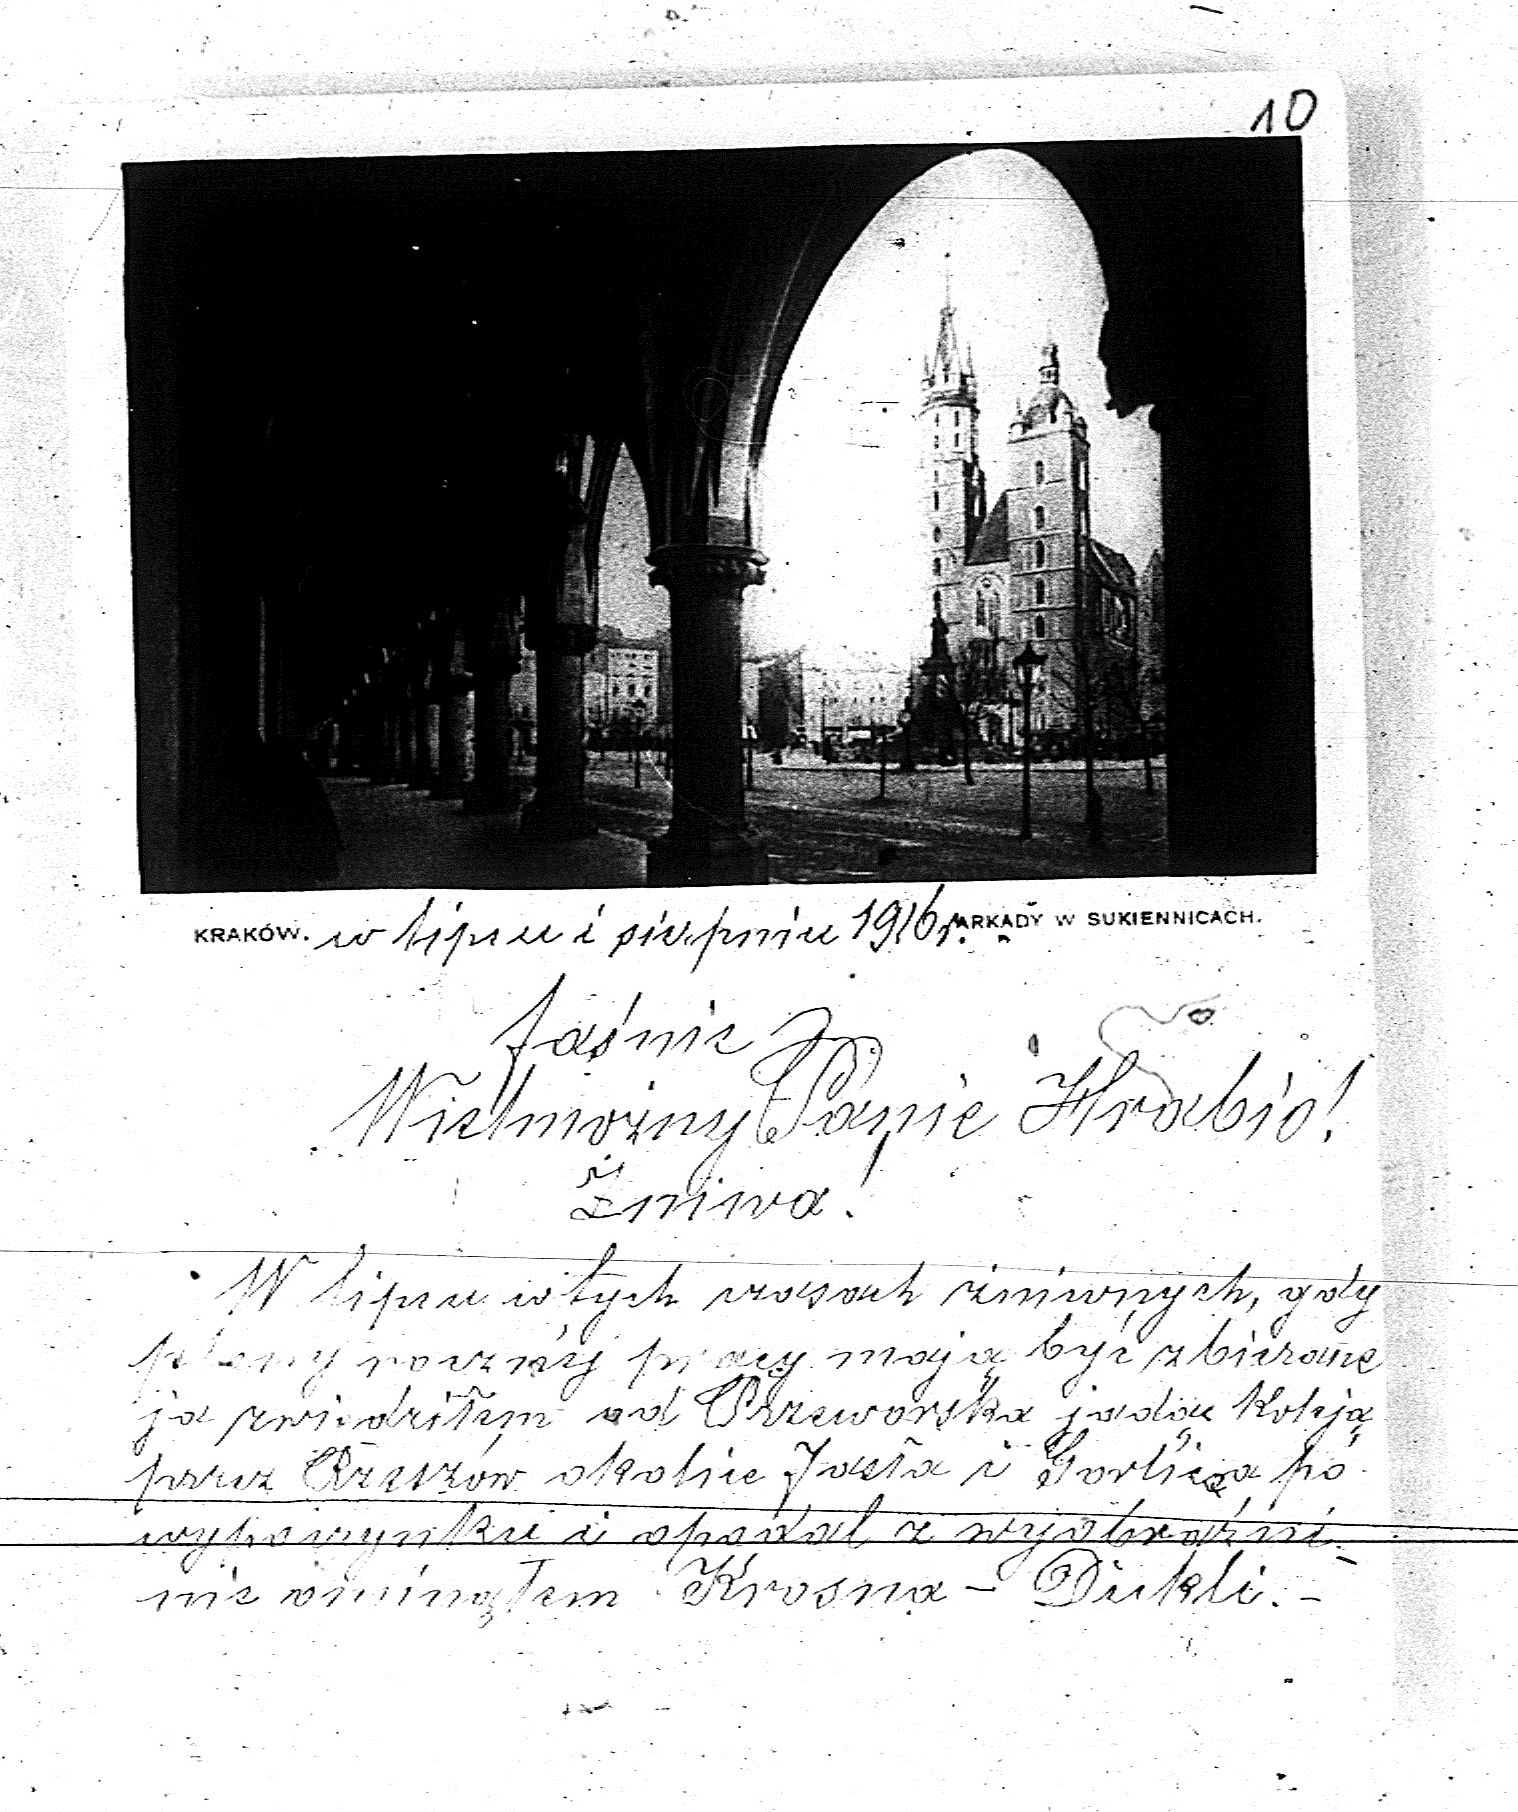 10
KRAKÓW. w lipcu i sierpniu 1916 r. ARKADY W SUKIENNICACH.
Jaśnie
Wielmożny Panie Hrabio!
Żniwa!
W lipcu w tych czasach żniwnych, gdy
plony rocznej pracy mają być zbierane
ja zwiedziłem od Przeworska jadąc koleją
przez Rzeszów okolice Jasła i Gorlic a po
wypoczynku i opodal z wyobraźni
nie ominąłem Krosna - Dukli. -